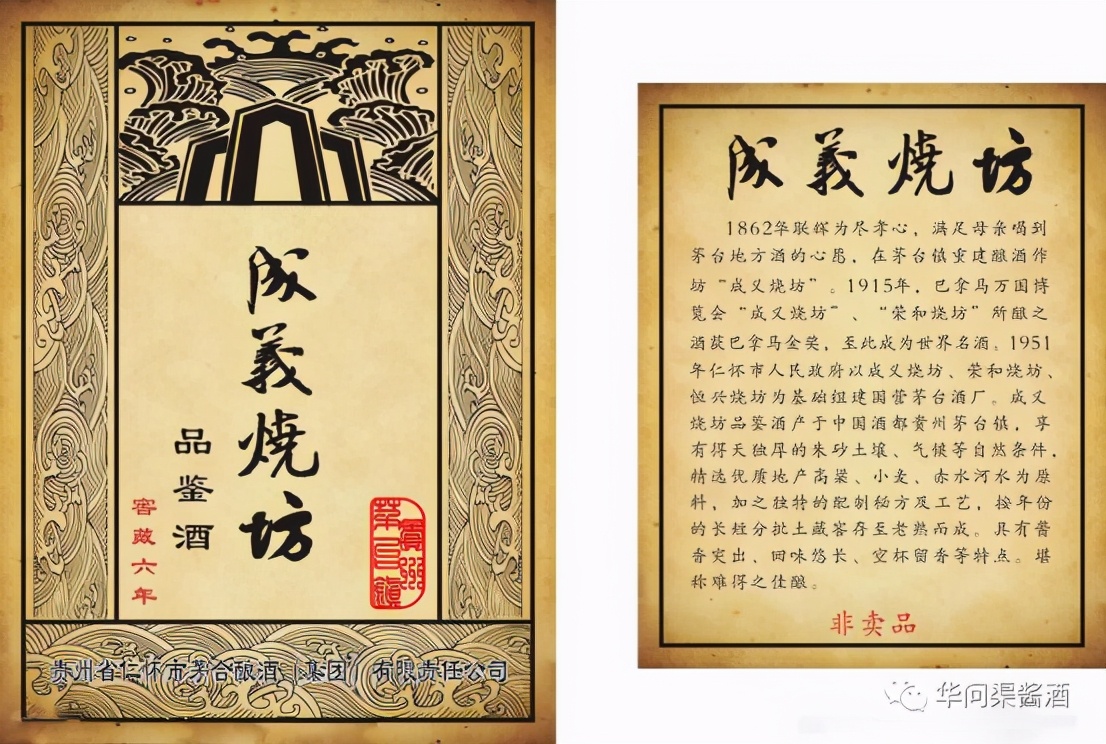 成義燒坊
品鉴酒
窖藏六年
贵州茅台镇
贵州省仁怀市茅合酿酒（集团）有限责任公司
成義燒坊
1862年联辉为尽孝心，满足母亲喝到
茅台地方酒的心愿，在茅台镇重建酿酒作
坊“成义烧坊”。1915年，巴拿马万国博
览会“成义烧坊”、“荣和烧坊”所酿之
酒获巴拿马金奖，至此成为世界名酒。1951
年仁怀市人民政府以成义烧坊、荣和烧坊、
恒兴烧坊为基础组建国营茅台酒厂。成义
烧坊品鉴酒产于中国酒都贵州茅台镇，享
有得天独厚的朱砂土壤、气候等自然条件，
精选优质地产高粱、小麦、赤水河水为原
料，加之独特的配制秘方及工艺，按年份
的长短分批土藏窖存至老熟而成。具有酱
香突出、回味悠长、空杯留香等特点。堪
称难得之佳酿。
非卖品
华问渠酱酒